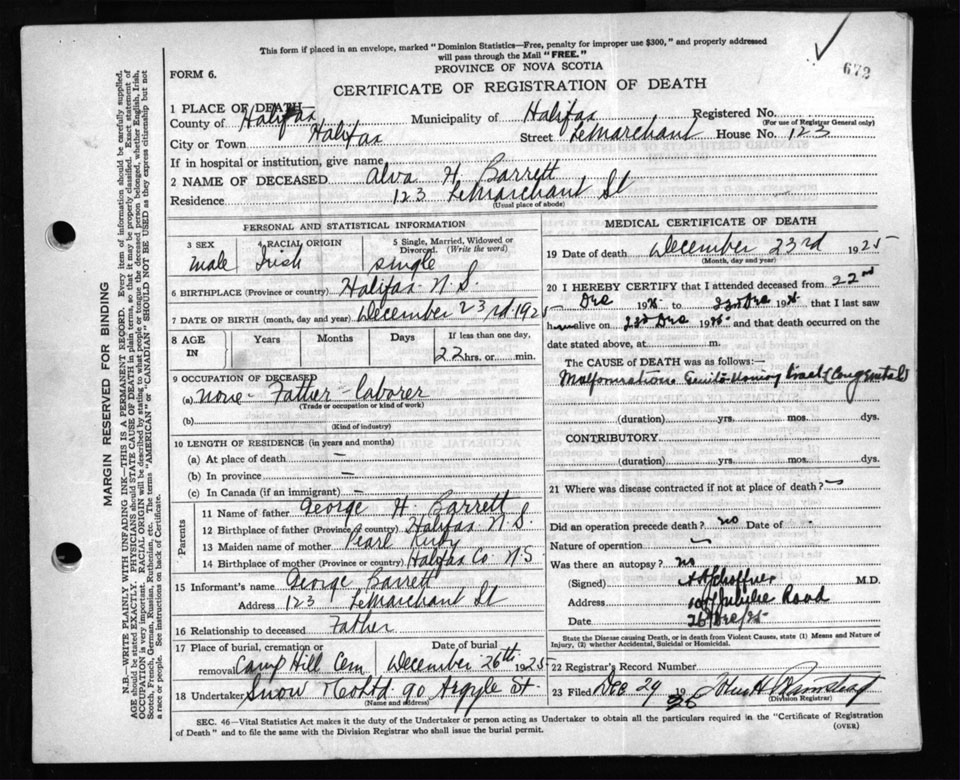 This form if placed in an envelope, marked "Dominion Statistics—Free, penalty for improper use $300," and properly addressed
will pass through the Mail "FREE."
672
PROVINCE OF NOVA SCOTIA
FORM 6.
CERTIFICATE OF REGISTRATION OF DEATH
1 PLACE OF DEATH—
County of Halifax Municipality of Halifax Registered No.
(For use of Registrar General only)
City or Town Halifax Street LeMarchant House No. 123
If in hospital or institution, give name
2 NAME OF DECEASED Alva H. Barrett
Residence 123 LeMarchant St
(Usual place of abode)
PERSONAL AND STATISTICAL INFORMATION
3 SEX 4 RACIAL ORIGIN 5 Single, Married, Widowed or
Divorced. (Write the word)
Male Irish single
6 BIRTHPLACE (Province or country) Halifax N.S.
7 DATE OF BIRTH (month, day and year) December 23rd. 1925
8 AGE IN Years Months Days If less than one day,
22 hrs. or min.
9 OCCUPATION OF DECEASED
(a) None - Father - Laborer
(Trade or occupation or kind of work)
(b)
(Kind of industry)
10 LENGTH OF RESIDENCE (in years and months)
(a) At place of death —
(b) In province —
(c) In Canada (if an immigrant) —
Parents
11 Name of father George H. Barrett
12 Birthplace of father (Province or country) Halifax N.S.
13 Maiden name of mother Pearl
14 Birthplace of mother (Province or country) Halifax Co. N.S
15 Informant's name George Barrett
Address 123 LeMarchant St
16 Relationship to deceased Father
17 Place of burial, cremation or Date of burial
removal Camp Hill Cem December 26th 1925
18 Undertaker Snow & Co Ltd 90 Argyle St.
(Name and address)
MEDICAL CERTIFICATE OF DEATH
19 Date of death December 23rd 1925
(Month, day and year)
20 I HEREBY CERTIFY that I attended deceased from 22nd
Dec 1925 to 23rd Dec 1925 that I last saw
him alive on 23rd Dec 1925 and that death occurred on the
date stated above, at m.
The CAUSE of DEATH was as follows:—
Malformation Genito-Urinary tract (Congenital)
(duration) yrs. mos. dys.
CONTRIBUTORY
(duration) yrs. mos. dys.
21 Where was disease contracted if not at place of death? —
Did an operation precede death? no Date of -
Nature of operation —
Was there an autopsy? no
(Signed) M.D.
Address Jubilee Road
Date 26 Dec 25
State the Disease causing Death, or in death from Violent Causes, state (1) Means and Nature of
Injury, (2) whether Accidental, Suicidal or Homicidal.
22 Registrar's Record Number
23 Filed Dec 29 19 John H
(Division Registrar)
SEC. 46—Vital Statistics Act makes it the duty of the Undertaker or person acting as Undertaker to obtain all the particulars required in the "Certificate of Registration
of Death" and to file the same with the Division Registrar who shall issue the burial permit.
(OVER)
MARGIN RESERVED FOR BINDING
N.B.—WRITE PLAINLY WITH UNFADING INK—THIS IS A PERMANENT RECORD. Every item of information should be carefully supplied.
AGE should be stated EXACTLY. PHYSICIANS should STATE CAUSE OF DEATH in plain terms, so that it may be properly classified. Exact statement of
OCCUPATION is very important. RACIAL ORIGIN will be described by stating to what people or tongue the deceased person belonged, whether English, Irish,
Scotch, French, German, Russian, Ruthenian, etc. The terms "AMERICAN" or "CANADIAN" SHOULD NOT BE USED as they express citizenship but not
a race or people. See instructions on back of Certificate.